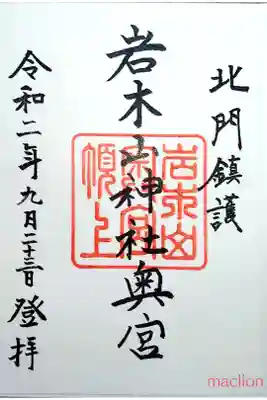 北門鎮護
岩木山神社奥宮
令和二年九月二十三日登拝
maclion